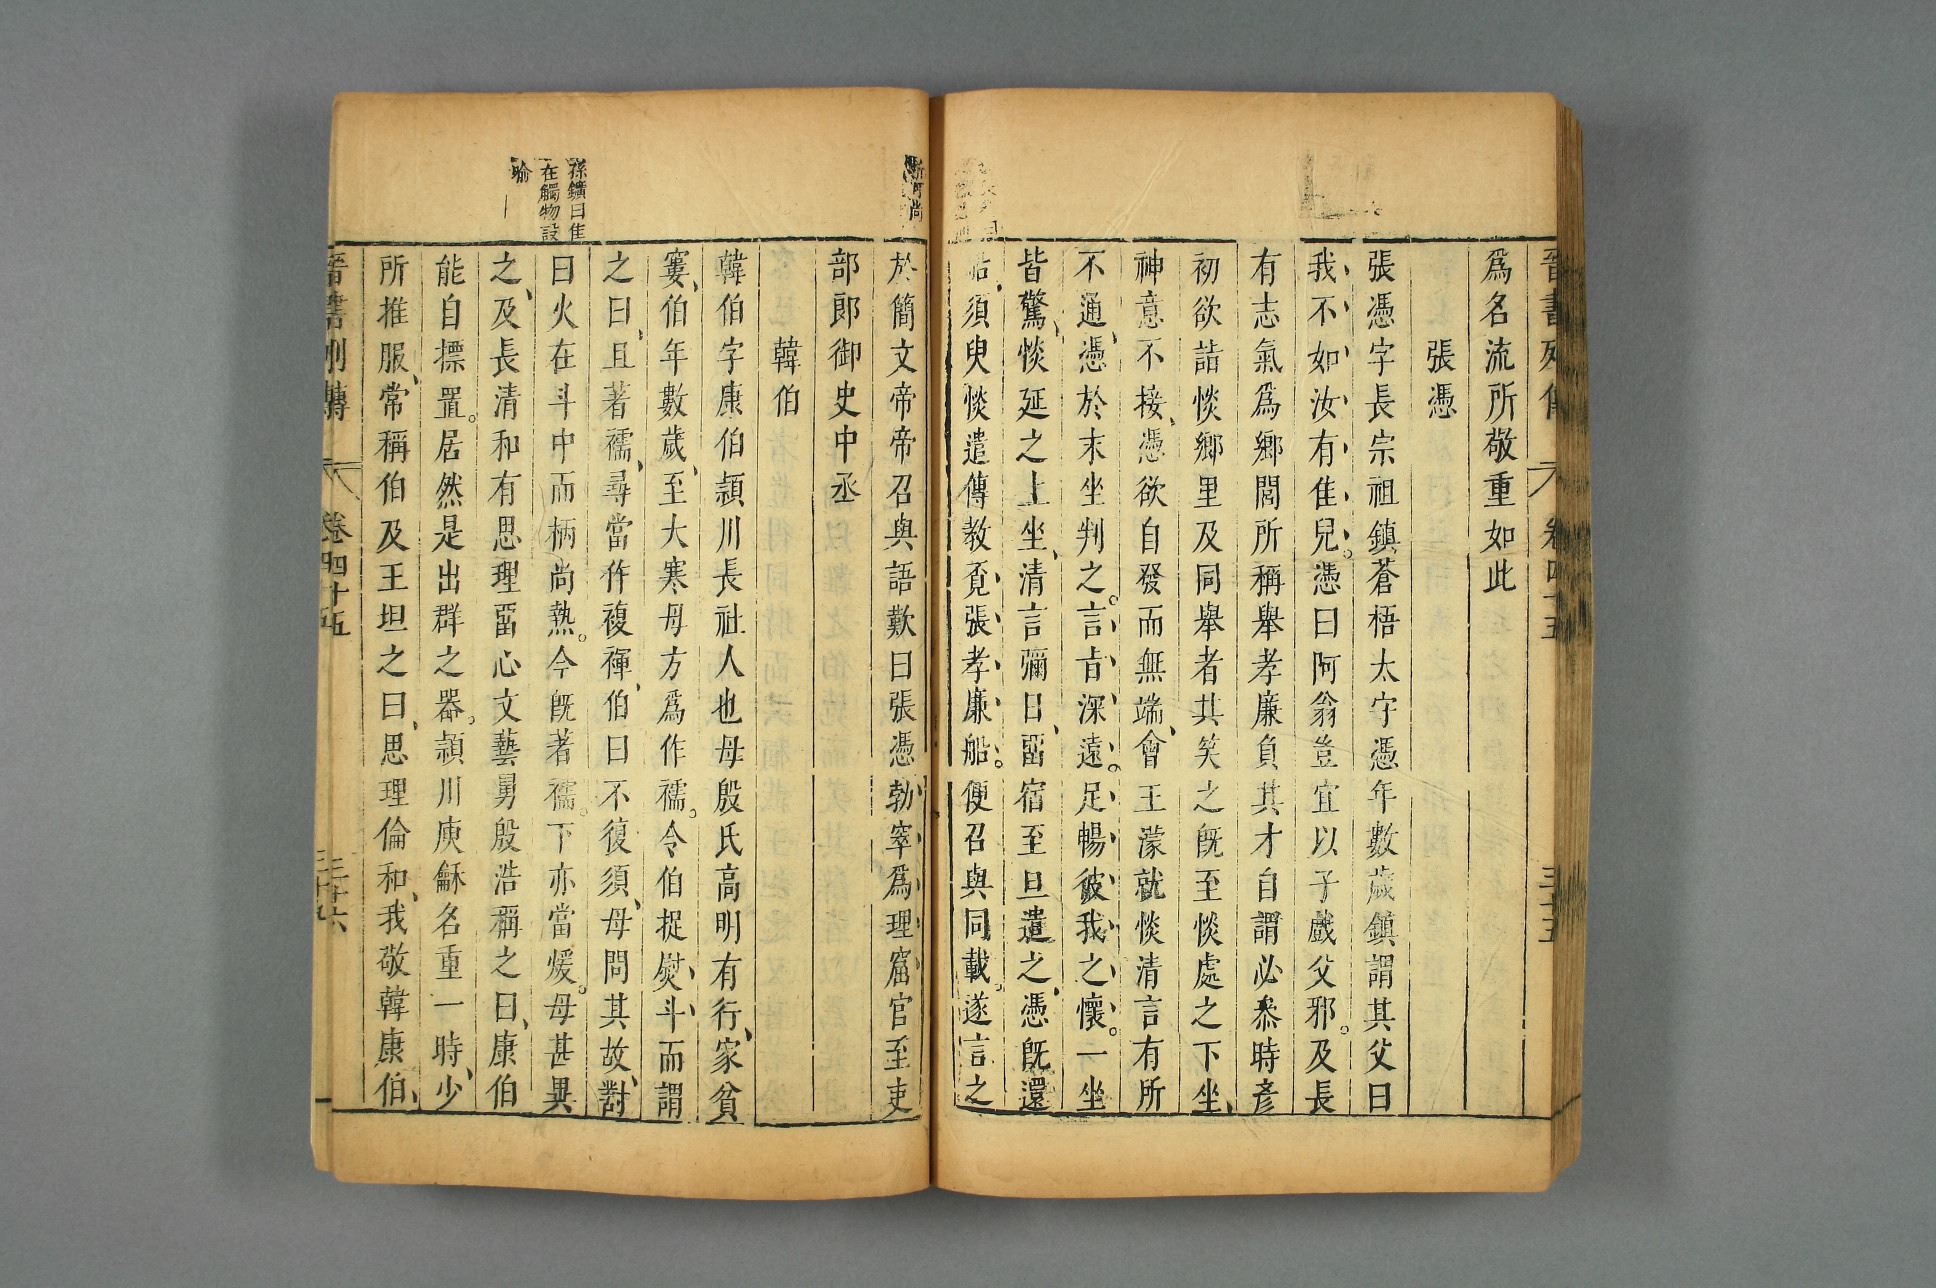 晉書列傳 卷四十五 三十五
爲名流所敬重如此
張憑
張憑字長宗祖鎮蒼梧太守憑年數歲鎮謂其父曰
我不如汝有佳兒。憑曰阿翁豈宜以子戲父邪。及長
有志氣爲鄉閭所稱舉孝廉負其才自謂必叅時彥
初欲詣惔鄉里及同舉者共笑之旣至惔處之下坐、
神意不接、憑欲自發而無端、會王濛就惔清言有所
不通、憑於末坐判之。言㫖深遠。足暢彼我之懷。一坐
皆驚、惔延之上坐、清言彌日、畱宿至旦遣之、憑旣還
船、須臾惔遣傳教覓張孝廉船。便召與同載。遂言之
於簡文帝帝召與語歎曰張憑勃窣爲理窟官至吏
部郎御史中丞
韓伯
韓伯字康伯潁川長社人也母殷氏高明有行、家貧
窶、伯年數歲、至大寒母方爲作襦。令伯捉熨斗而謂
之曰、且著襦、尋當作複褌、伯曰不復須、母問其故、對
曰火在斗中而柄尚熱。今旣著襦。下亦當煖。母甚異
之、及長清和有思理畱心文藝舅殷浩稱之曰、康伯
能自標置。居然是出群之器。潁川庾龢名重一時、少
所推服、常稱伯及王坦之曰、思理倫和、我敬韓康伯、
孫鑛曰佳
在觸物設
喻
晉書列傳 卷四十五 三十六